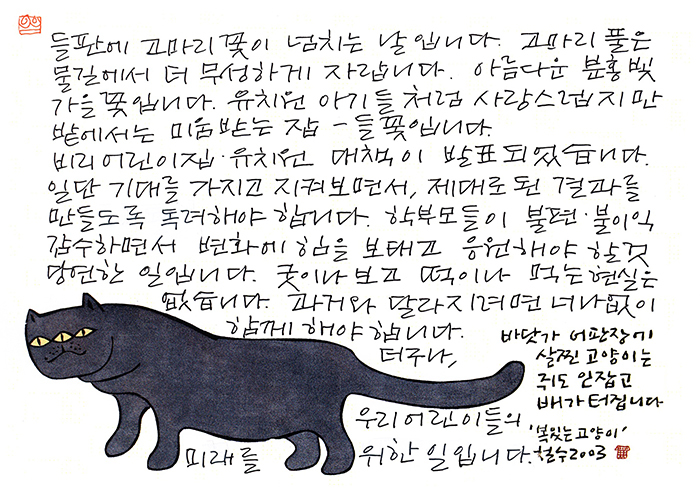 들판에 고마리 꽃이 넘치는 날입니다. 고마리 풀은
물길에서 더 무성하게 자랍니다. 아름다운 분홍빛
가을 꽃입니다. 유치원 아기들처럼 사랑스럽지만
밭에서는 미움받는 잡-들꽃입니다.
비리어린이집·유치원 대책이 발표되었습니다.
일단 기대를 가지고 지켜보면서, 제대로 된 결과를
만들도록 독려해야 합니다. 학부모들이 불편·불이익
감수하면서 변화에 힘을 보태고 응원해야 할 것
당연한 일입니다. 굿이나 보고 떡이나 먹는 현실은
없습니다. 과거와 달라지려면 너나없이
함께 해야 합니다.
더구나,
우리 어린이들의
미래를 위한 일입니다.
바닷가 어판장에
살찐 고양이는
쥐도 안잡고
배가 터집니다
'복있는 고양이'
철수 2003